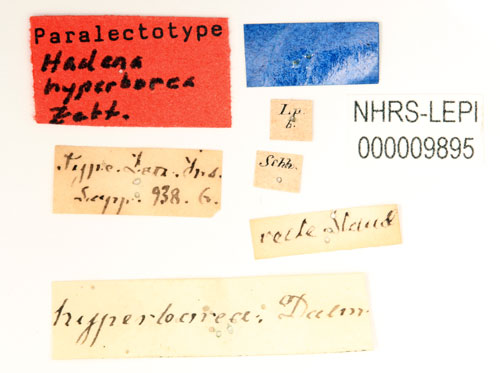 Paralectotype
Hadena
hyperborea
Zett.
Lp.
b.
NHRS-LEPI
000009895
Schh.
Type. Zett. Ins.
Lapp. 938. 6.
recte Staud
hyperborea: Dalm.